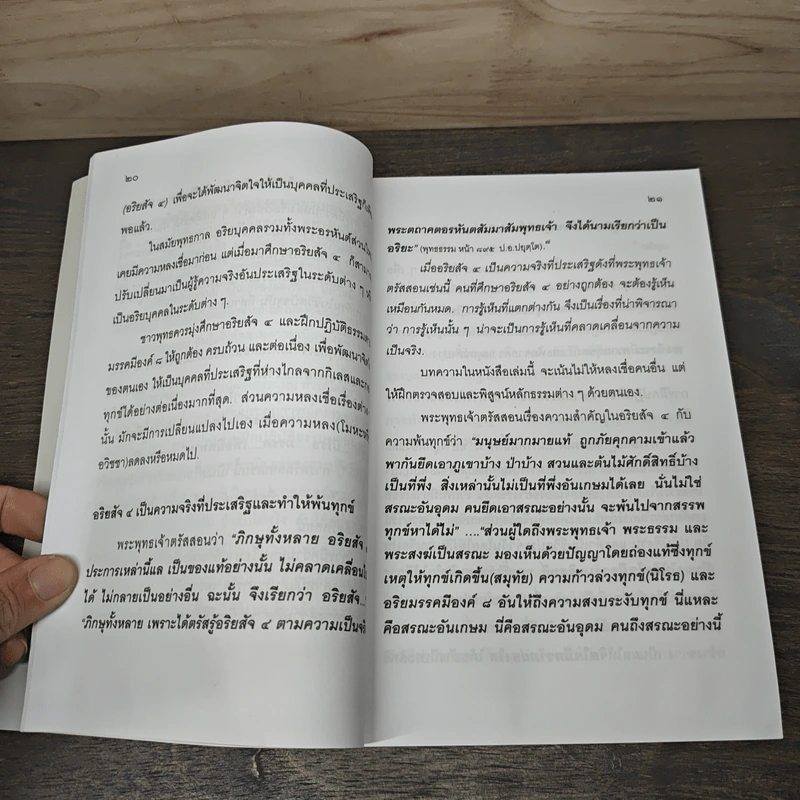 ๒๐
(อริยสัจ ๔) เพื่อจะได้พัฒนาจิตใจให้เป็นบุคคลที่ประเสริฐ
พอแล้ว.
ในสมัยพุทธกาล อริยบุคคลรวมทั้งพระอรหันต์ส่วน
เคยมีความหลงเชื่อมาก่อน แต่เมื่อมาศึกษาอริยสัจ ๔
ปรับเปลี่ยนมาเป็นผู้รู้ความจริงอันประเสริฐในระดับต่าง ๆ
เป็นอริยบุคคลในระดับต่าง ๆ.
ชาวพุทธควรมุ่งศึกษาอริยสัจ ๔ และฝึกปฏิบัติธรรม
มรรคมีองค์ ๘ ให้ถูกต้อง ครบถ้วน และต่อเนื่อง เพื่อพัฒนา
ของตนเอง ให้เป็นบุคคลที่ประเสริฐที่ห่างไกลจากกิเลส
ทุกข์ได้อย่างต่อเนื่องมากที่สุด. ส่วนความหลงเชื่อเรื่อง
นั้น มักจะมีการเปลี่ยนแปลงไปเอง เมื่อความหลง(โมหะ
อวิชชา)ลดลงหรือหมดไป.
อริยสัจ ๔ เป็นความจริงที่ประเสริฐและทำให้พ้นทุกข์
พระพุทธเจ้าตรัสสอนว่า "ภิกษุทั้งหลาย อริยสัจ
ประการเหล่านี้แล เป็นของแท้อย่างนั้น ไม่คลาดเคลื่อน
ได้ ไม่กลายเป็นอย่างอื่น ฉะนั้น จึงเรียกว่า อริยสัจ...
"ภิกษุทั้งหลาย เพราะได้ตรัสรู้อริยสัจ ๔ ตามความเป็น
๒๑
พระตถาคตอรหันตสัมมาสัมพุทธเจ้า จึงได้นามเรียกว่าเป็น
อริยะ" (พุทธธรรม หน้า ๘๙๕ ป.อ.ปยุตฺโต)."
เมื่ออริยสัจ ๔ เป็นความจริงที่ประเสริฐดังที่พระพุทธเจ้า
ตรัสสอนเช่นนี้ คนที่ศึกษาอริยสัจ ๔ อย่างถูกต้อง จะต้องรู้เห็น
เหมือนกันหมด. การรู้เห็นที่แตกต่างกัน จึงเป็นเรื่องที่น่าพิจารณา
ว่า การรู้เห็นนั้น ๆ น่าจะเป็นการรู้เห็นที่คลาดเคลื่อนจากความ
เป็นจริง.
บทความในหนังสือเล่มนี้ จะเน้นไม่ให้หลงเชื่อคนอื่น แต่
ให้ฝึกตรวจสอบและพิสูจน์หลักธรรมต่าง ๆ ด้วยตนเอง.
พระพุทธเจ้าตรัสสอนเรื่องความสำคัญในอริยสัจ ๔ กับ
ความพ้นทุกข์ว่า "มนุษย์มากมายแท้ ถูกภัยคุกคามเข้าแล้ว
พากันยึดเอาภูเขาบ้าง ป่าบ้าง สวนและต้นไม้ศักดิ์สิทธิ์บ้าง
เป็นที่พึ่ง สิ่งเหล่านั้นไม่เป็นที่พึ่งอันเกษมได้เลย นั่นไม่ใช่
สรณะอันอุดม คนยึดเอาสรณะอย่างนั้น จะพ้นไปจากสรรพ
ทุกข์หาได้ไม่" ...."ส่วนผู้ใดถึงพระพุทธเจ้า พระธรรม และ
พระสงฆ์เป็นสรณะ มองเห็นด้วยปัญญาโดยถ่องแท้ซึ่งทุกข์
เหตุให้ทุกข์เกิดขึ้น(สมุทัย) ความก้าวล่วงทุกข์(นิโรธ) และ
อริยมรรคมีองค์ ๘ อันให้ถึงความสงบระงับทุกข์ นี่แหละ
คือสรณะอันเกษม นี่คือสรณะอันอุดม คนถึงสรณะอย่างนี้